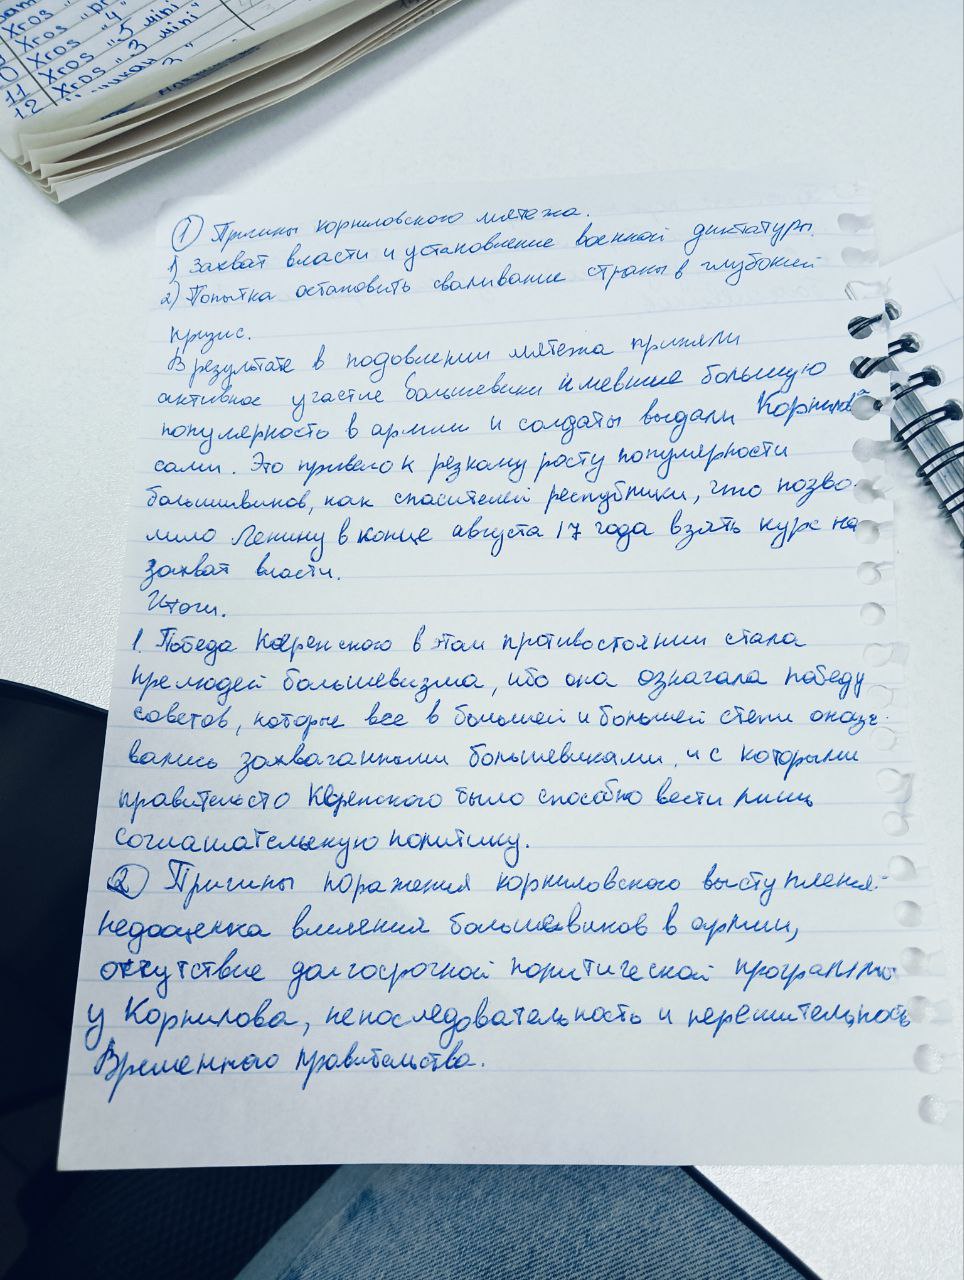 10 Xros "4"
11 Xros "5 mini"
12 Xros "3 mini"
① Причины корниловского мятежа.
1) Захват власти и установление военной диктатуры.
2) Попытка остановить сваливание страны в глубокий
кризис.
В результате в подовлении мятежа приняли
активное участие большевики имевшие большую
популярность в армии и солдаты выдали Корнилова
сами. Это привело к резкому росту популярности
большивиков, как спасителей республики, что позво-
лило Ленину в конце августа 17 года взять курс на
захват власти.
Итоги.
1. Победа Керенского в этом противостоянии стала
прелюдей большевизма, ибо она означала победу
советов, которые все в большей и большей степи оказы-
вались захваченными большевиками, и с которыми
правительсто Керенского было способно вести лишь
соглашательскую политику.
② Причины поражения корниловского выступления:
недооценка влияния большевиков в армии,
отсутствие долгосрочной политической программы
у Корнилова, непоследовательность и нерешительность
Временного правительства.